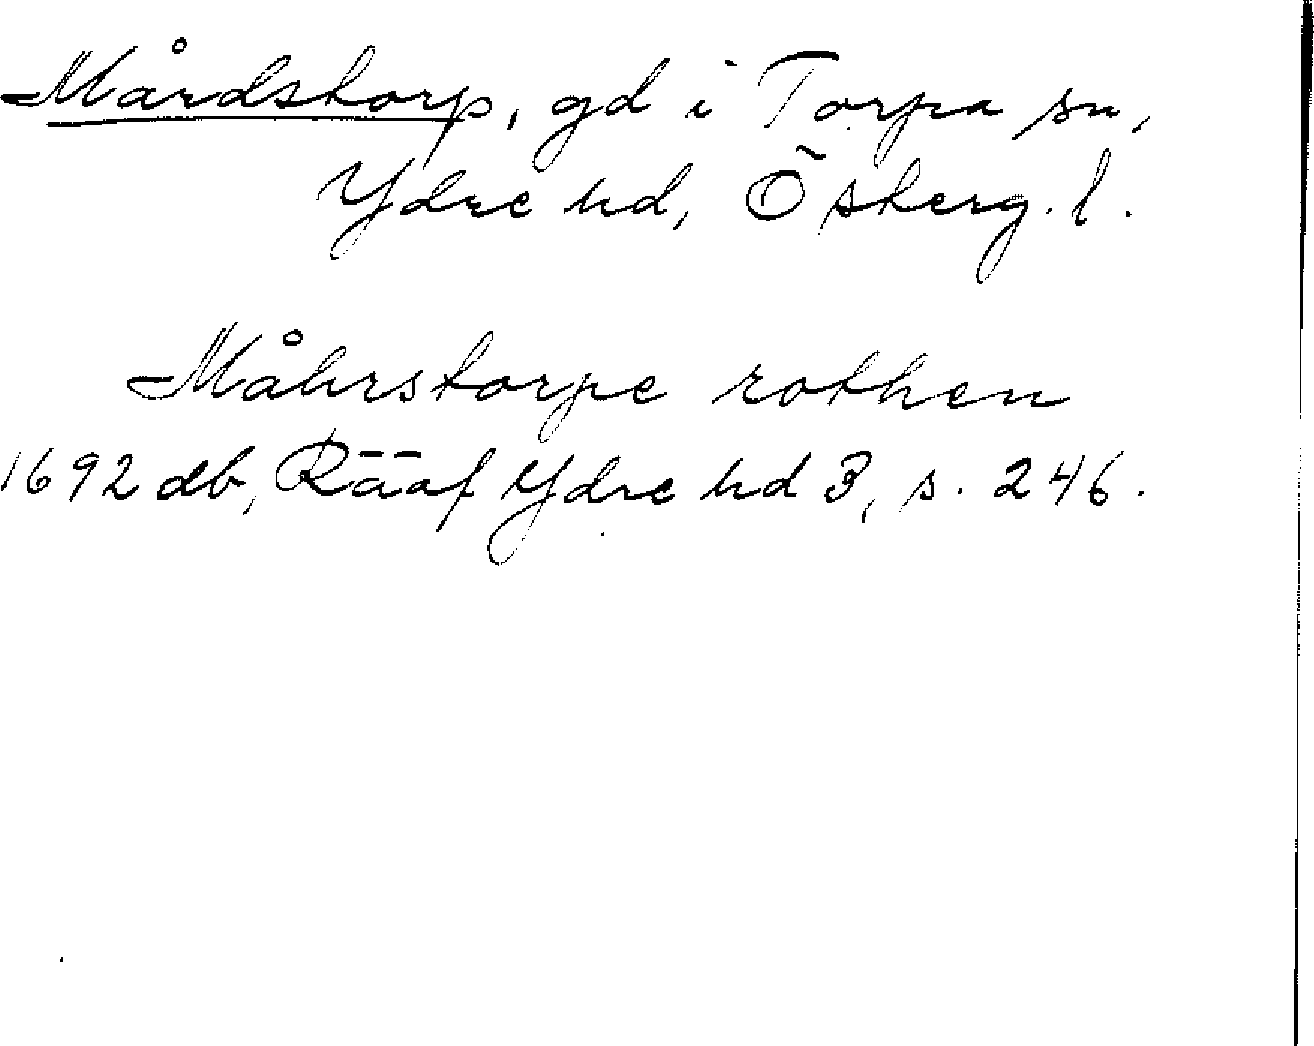 Mårdstorp, gd i Torpa sn,
Ydre hd, Östergl.
Måhrstorpe rothen
1692 db, Rääf Ydre hd 3, s. 246.